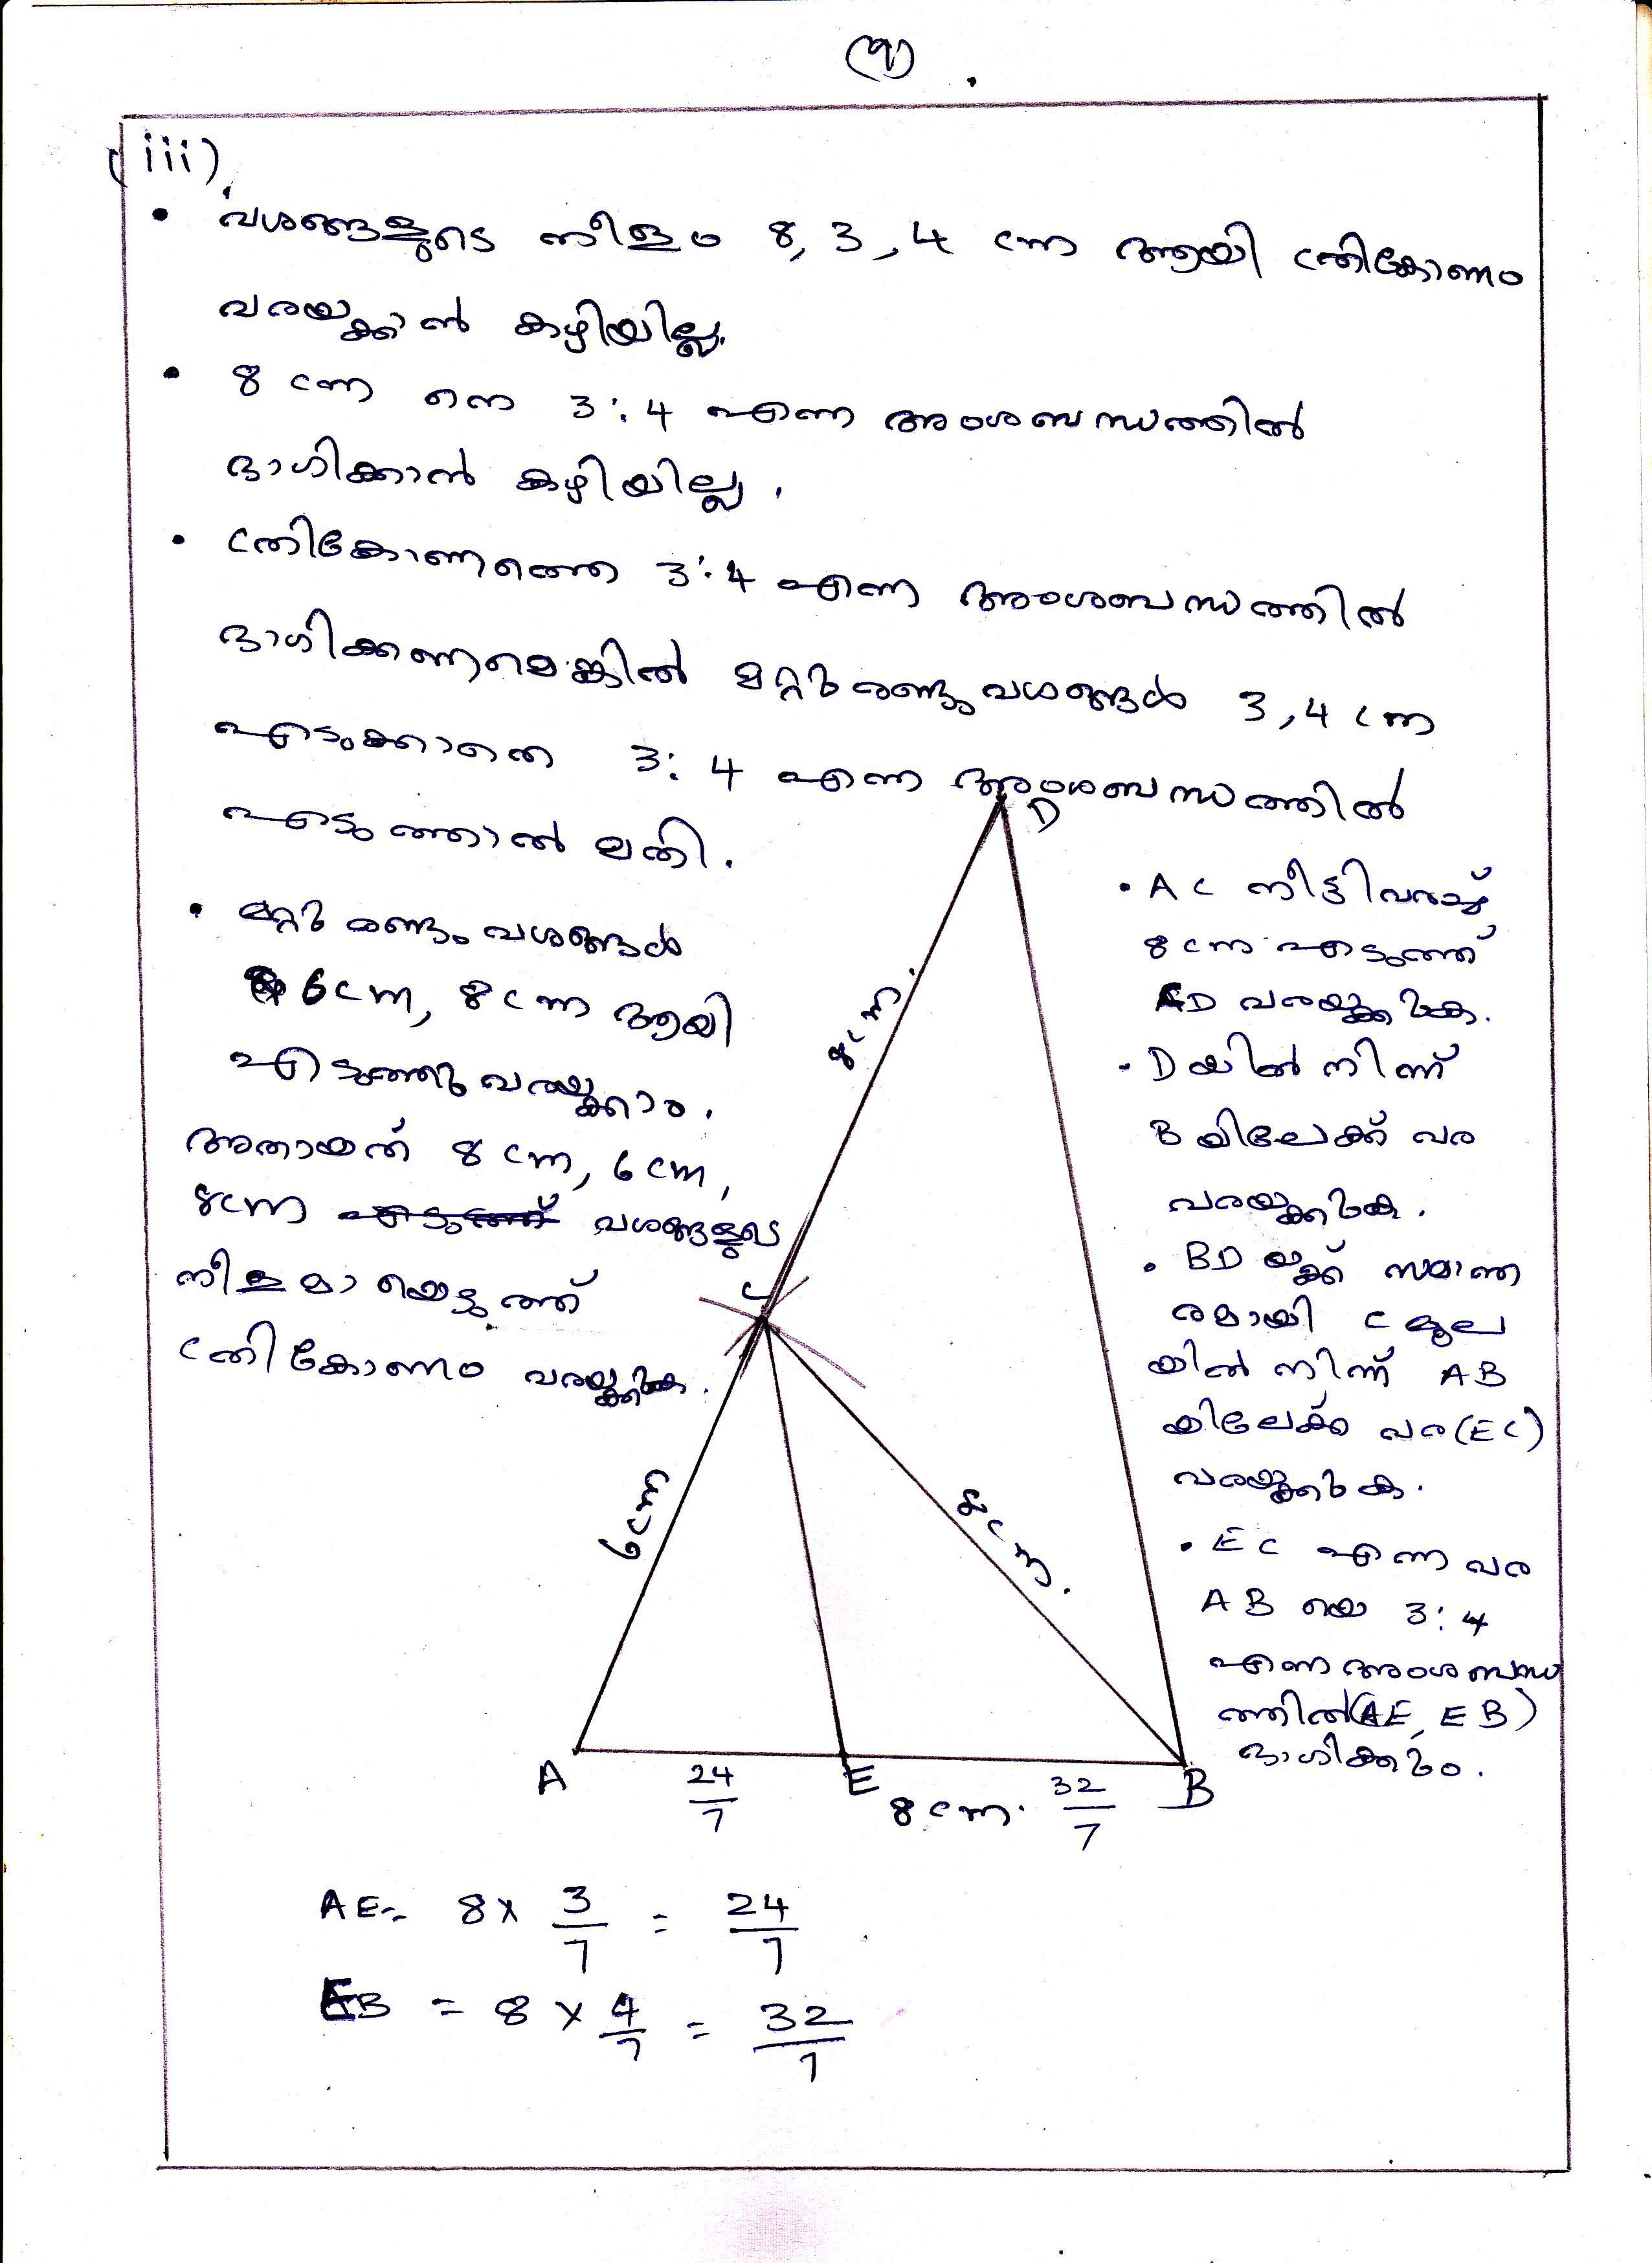 (9)
(iii)
• വശങ്ങളുടെ നീളം 8, 3, 4 cm ആയി ത്രികോണം
വരയ്ക്കാൻ കഴിയില്ല.
• 8 cm നെ 3:4 എന്ന അംശബന്ധത്തിൽ
ഭാഗിക്കാൻ കഴിയില്ല.
• ത്രികോണത്തെ 3:4 എന്ന അംശബന്ധത്തിൽ
ഭാഗിക്കണമെങ്കിൽ മറ്റു രണ്ടു വശങ്ങൾ 3, 4 cm
എടുക്കാതെ 3:4 എന്ന അംശബന്ധത്തിൽ
എടുത്താൽ മതി.
• മറ്റു രണ്ടും വശങ്ങൾ
6cm, 8cm ആയി
എടുത്തു വരയ്ക്കാം.
അതായത് 8 cm, 6 cm,
8cm എടുത്ത് വശങ്ങളുടെ
നീളമായെടുത്ത്
ത്രികോണം വരയ്ക്കുക.
D
• AC നീട്ടിവരച്ച്
8 cm എടുത്ത്
CD വരയ്ക്കുക.
• D യിൽ നിന്ന്
B യിലേക്ക് വര
വരയ്ക്കുക.
• BD യ്ക്ക് സമാന്ത
രമായി C മൂല
യിൽ നിന്ന് AB
യിലേക്ക് വര (EC)
വരയ്ക്കുക.
• EC എന്ന വര
AB യെ 3:4
എന്ന അംശബന്ധ
ത്തിൽ (AE, EB)
ഭാഗിക്കും.
8cm.
C
6cm
8cm.
A 24/7 E 8cm. 32/7 B
AE = 8 x 3/7 = 24/7
EB = 8 x 4/7 = 32/7